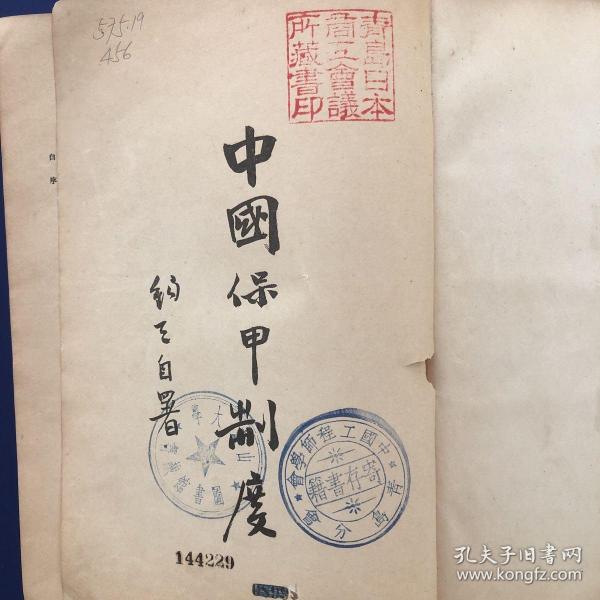 575.19
456
青島日本
商工會議
所藏書印
中國保甲制度
鈞天自署
自序
中國工程師學會
青島分會
寄存書籍
144229
孔夫子旧书网
www.kongfz.com